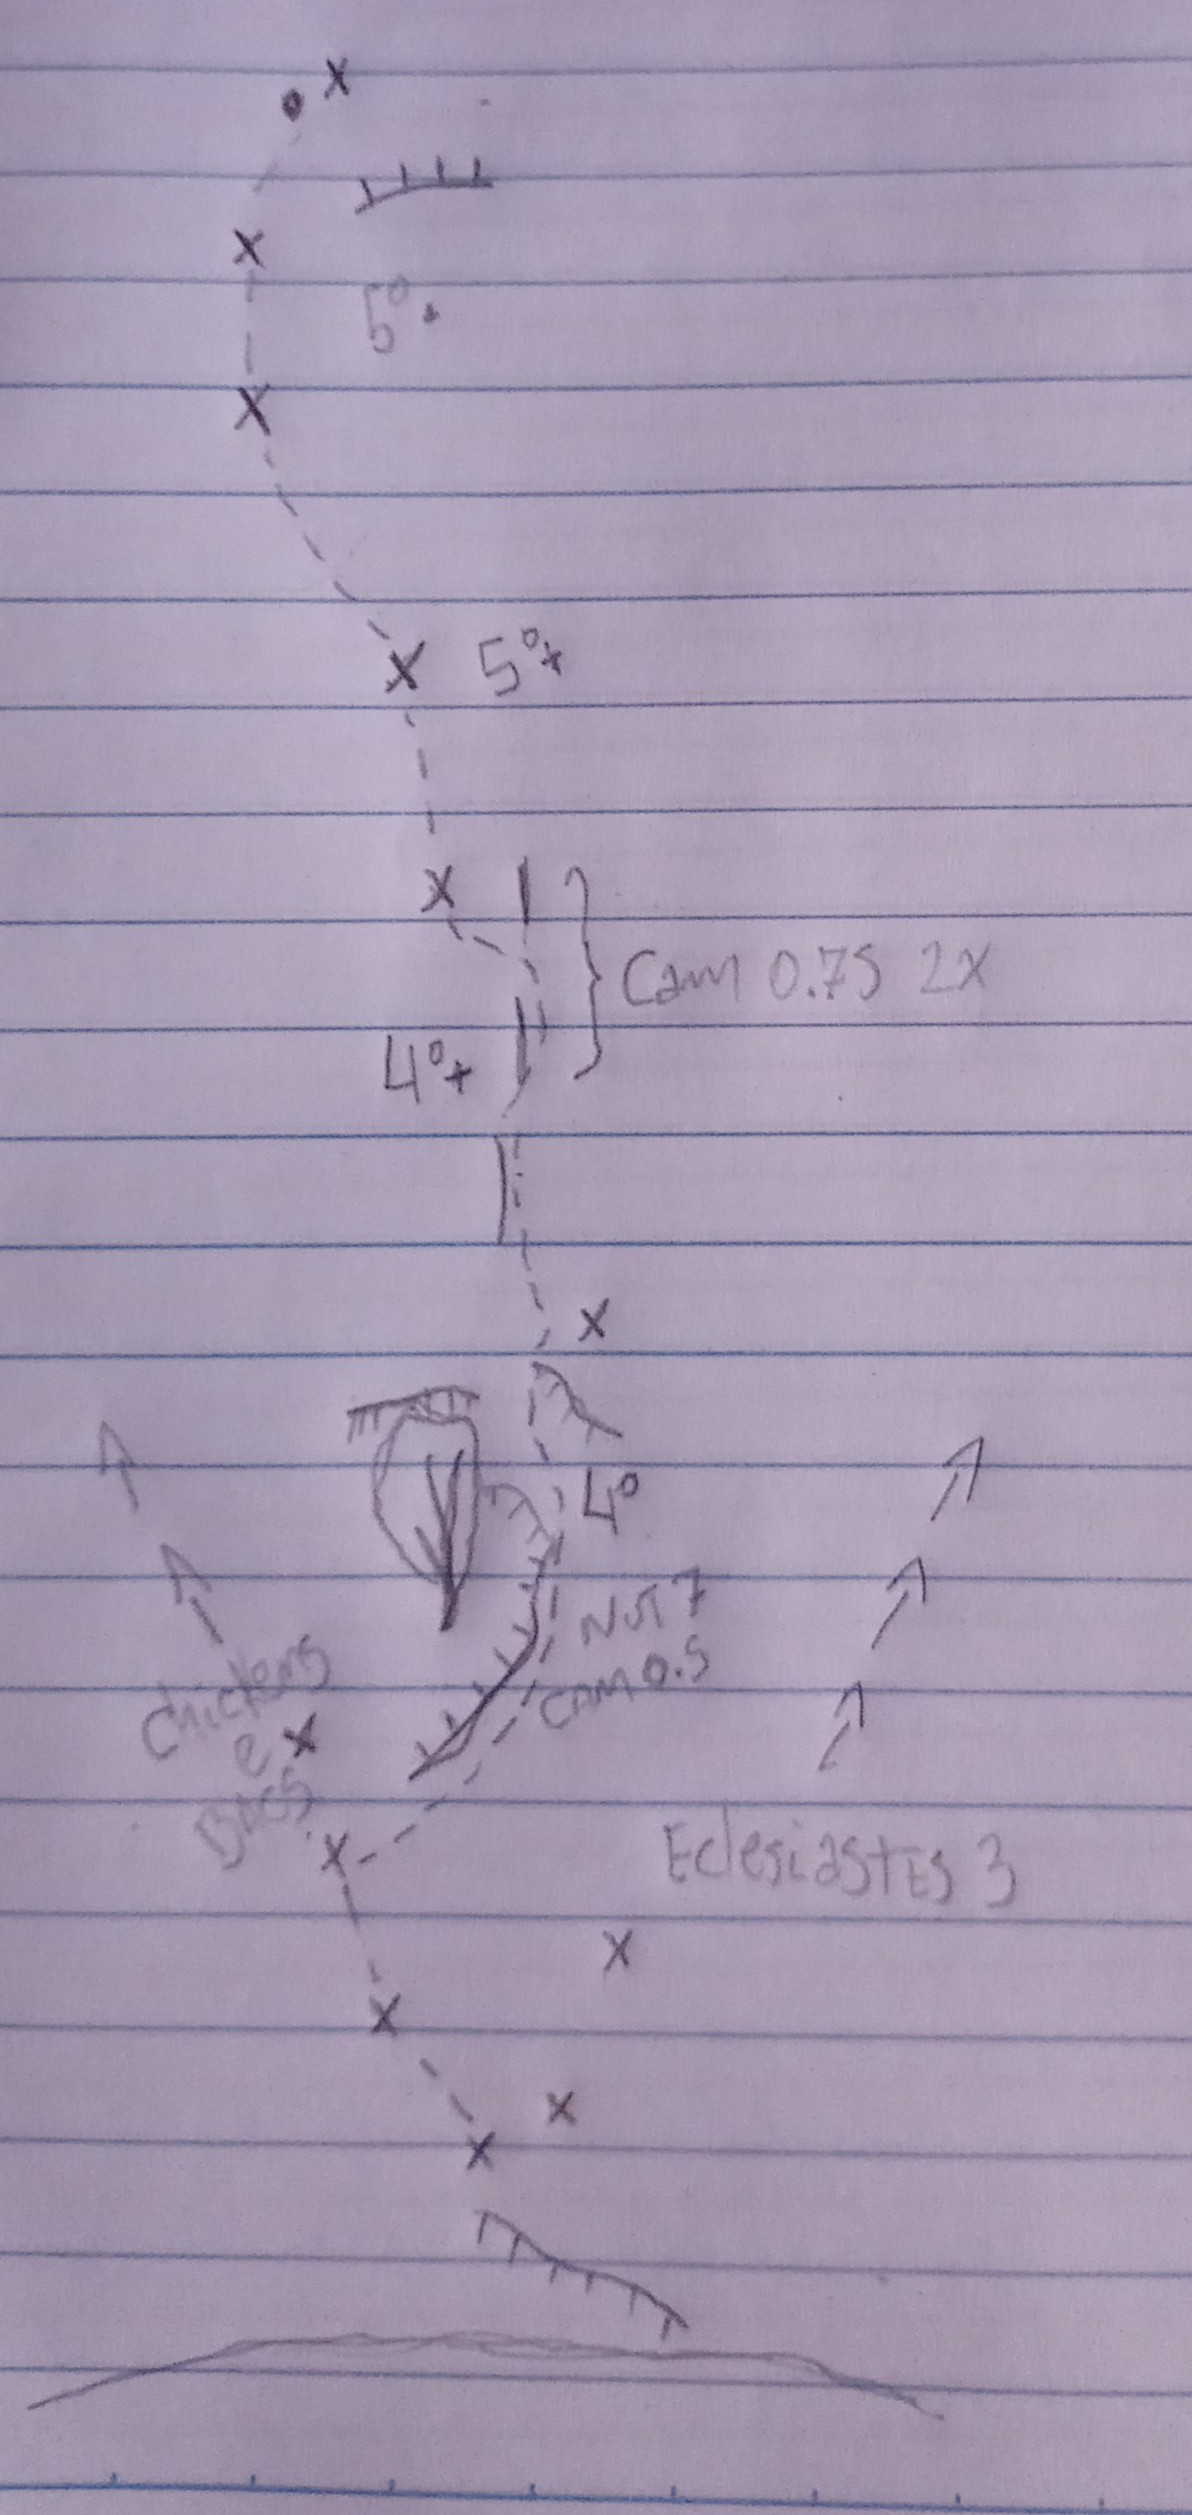 5º+
5º+
Cam 0.75 2X
4º+
4º
NUT 7
CAM 0.5
Chickens
e
BAGS
Eclesiastes 3